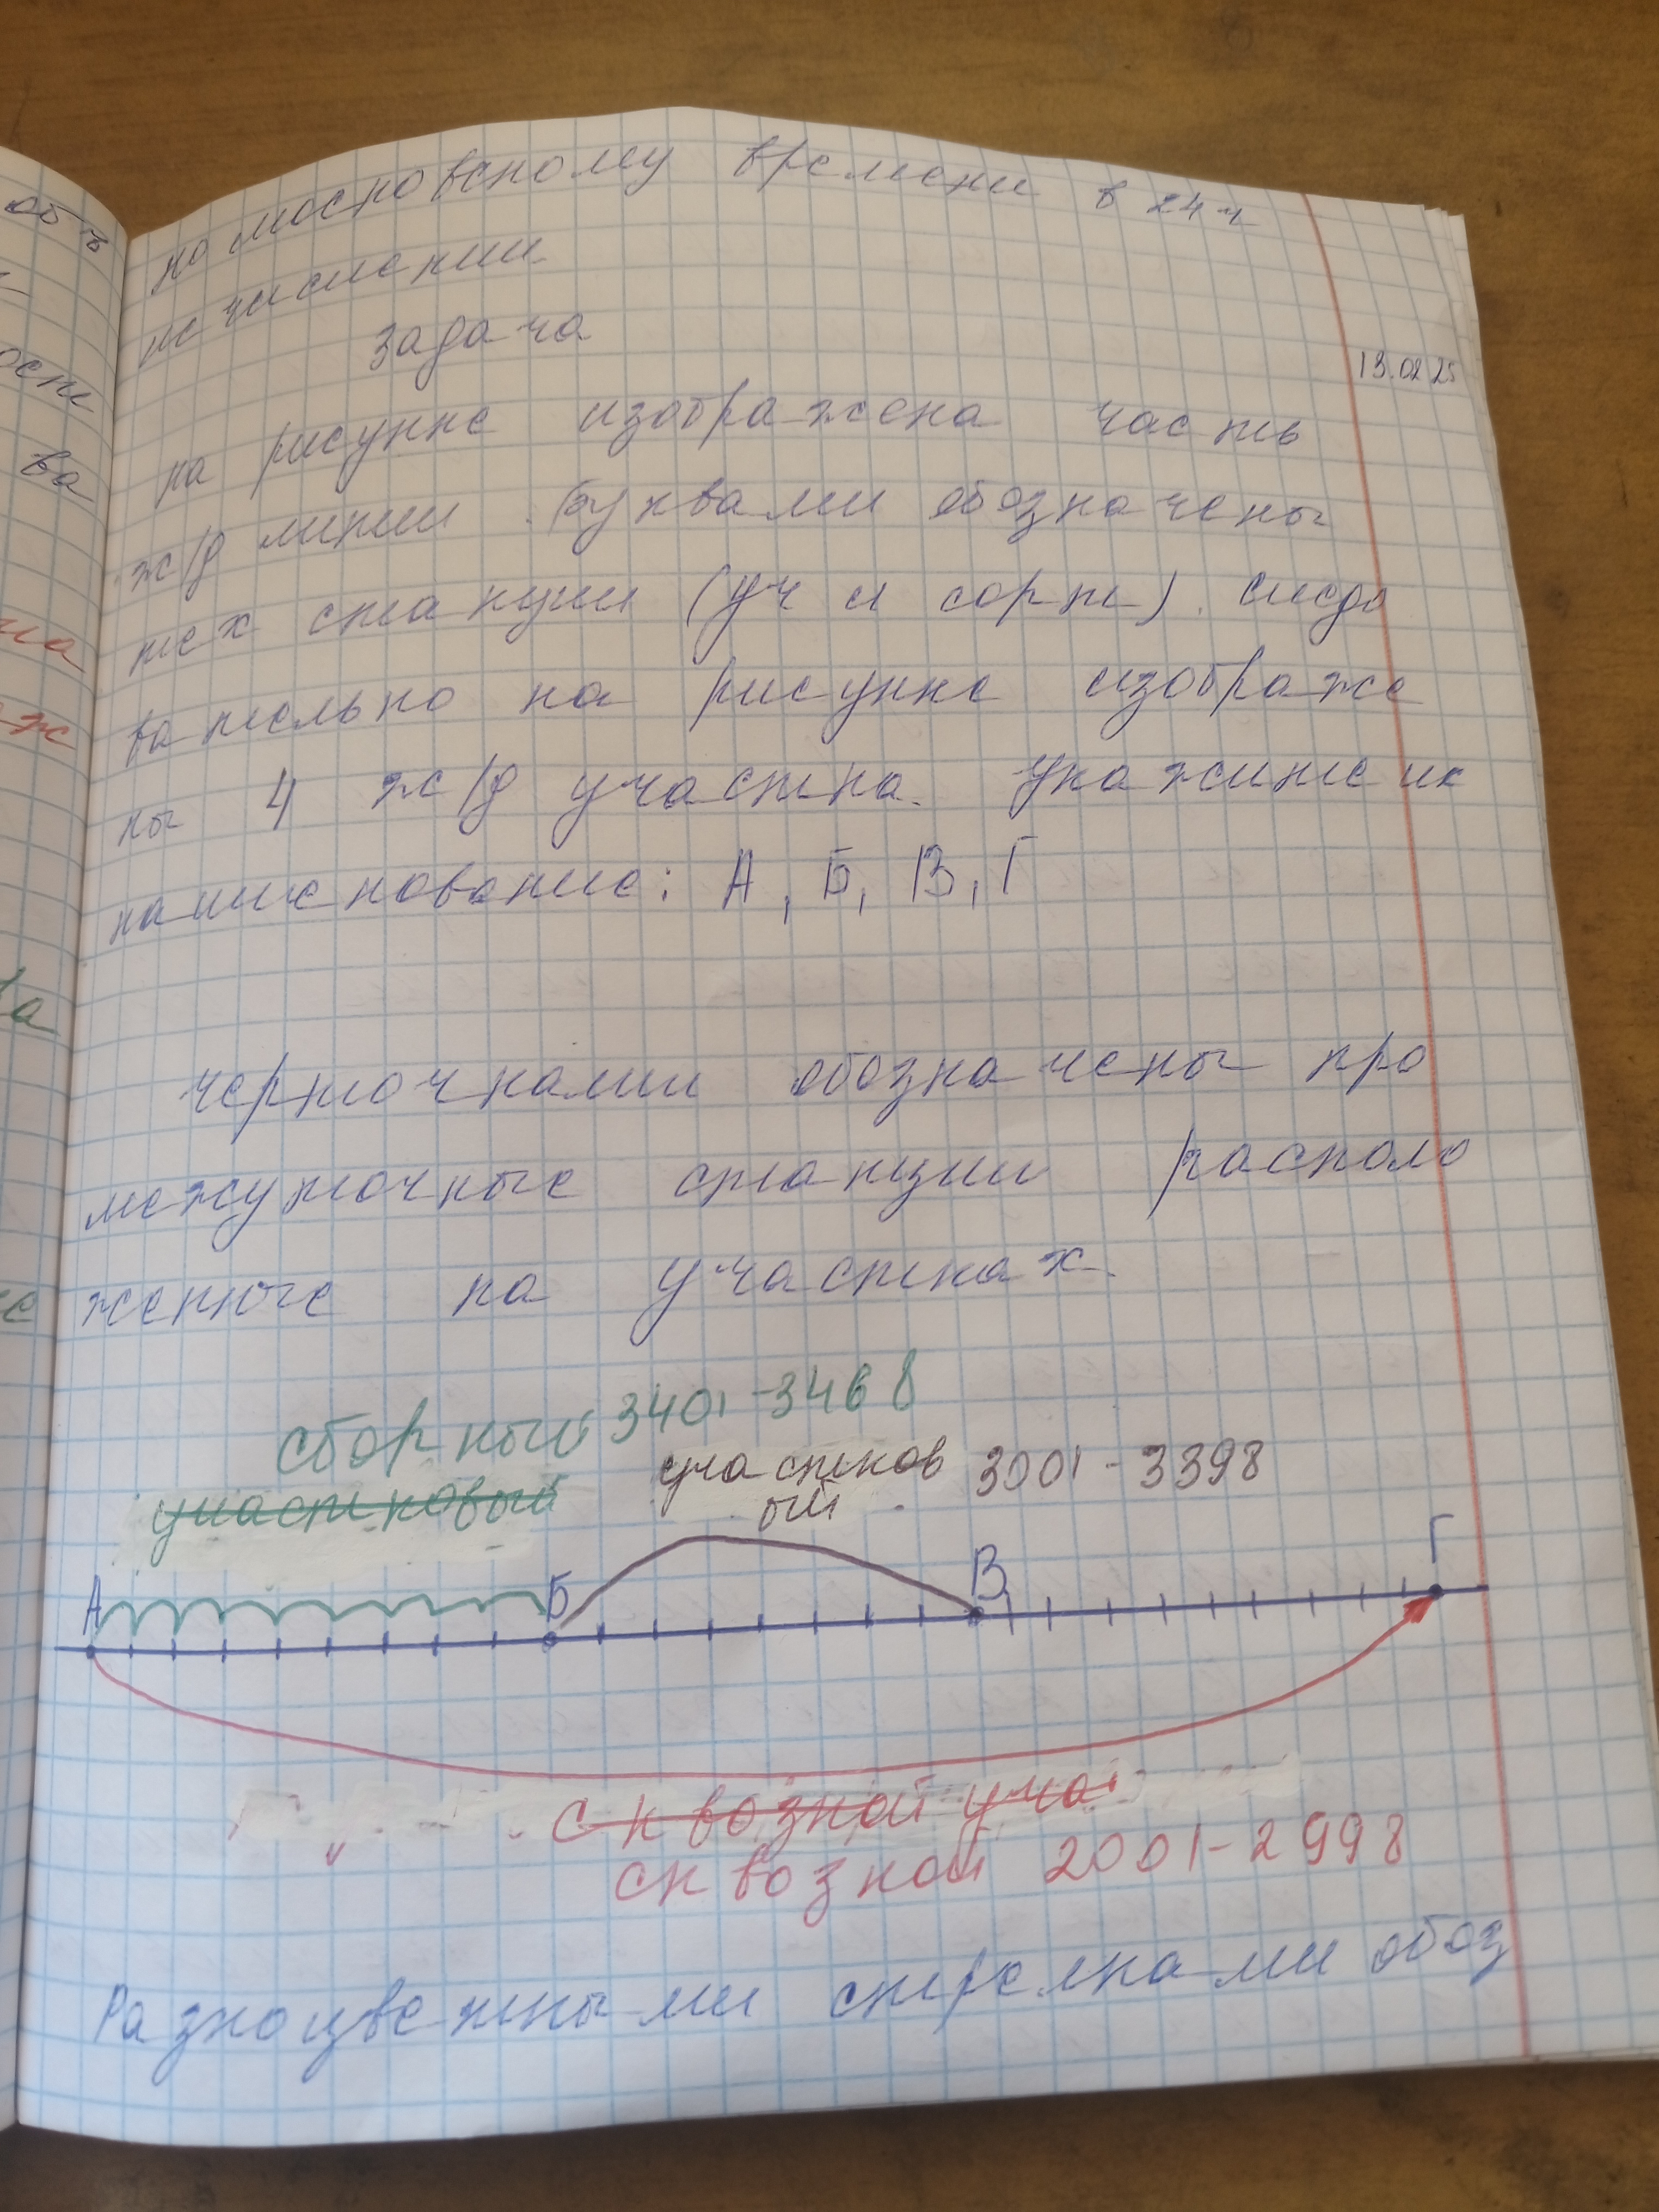 по московскому времени в 24 ч
исчислении
задача
13.02.25
на рисунке изображена часть
ж/д линии. буквами обозначены
тех станции (уч и сорт). следо
вательно на рисунке изображе
ны 4 ж/д участка. укажите их
наименование: А, Б, В, Г
черточками обозначены про
межуточные станции располо
женные на участках.
сборный 3401-3468
участков 3001-3398
ый
участковый
А Б В Г
сквозной уча
сквозной 2001-2998
Разноцветными стрелками обоз